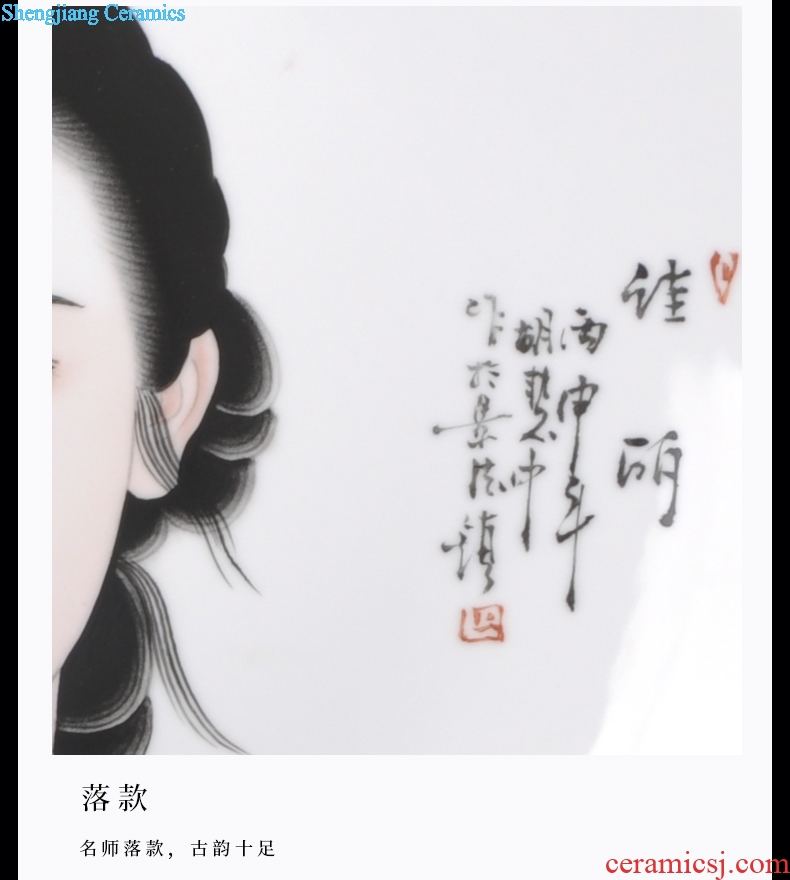 Shengjiang Ceramics
丙申年
胡慧中
作於景德镇
落款
名师落款，古韵十足
ceramicsj.com